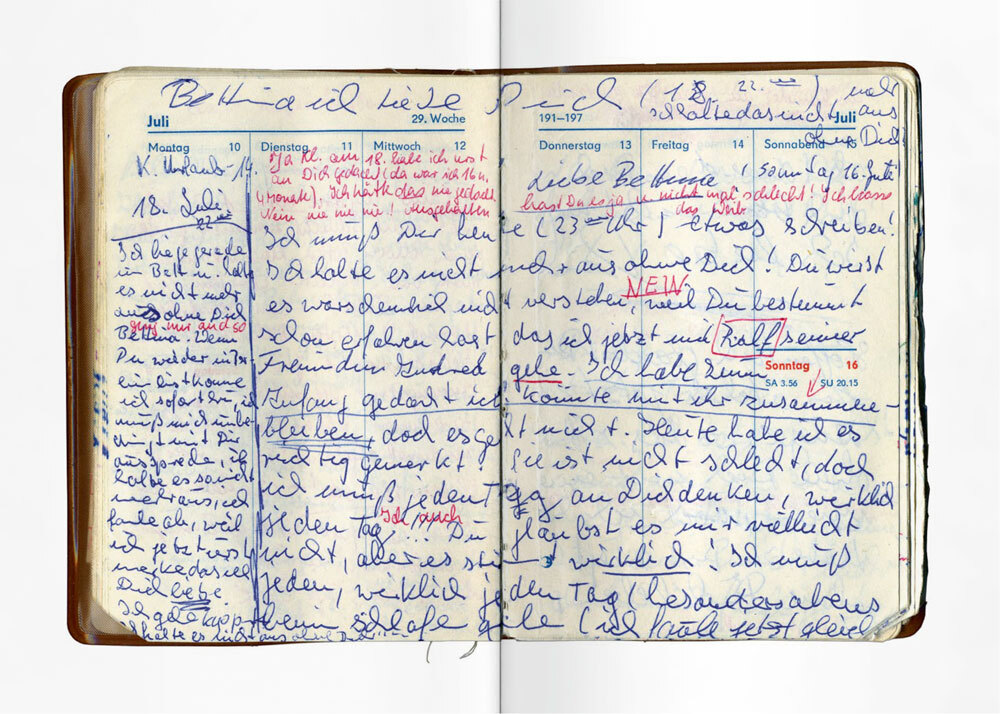 Bettina ich liebe Dich (18. 22.00) mehr
schalte das nicht aus
ohne Dich
Juli 29. Woche
191–197 Juli
Montag 10
Dienstag 11
Mittwoch 12
Donnerstag 13
Freitag 14
Sonnabend 15
K. Urlaub - 14.
18. Juli
22.00
Ich liege gerade
im Bett u. halte
es nicht mehr
aus ohne Dich
ging mir auch so
Bettina. Wenn
Du wieder
bist komme
ich sofort ich
muß mich unbe-
dingt mit Dir
aussprechen, ich
halte es so nicht
mehr aus, ich
weil
ich jetzt erst
merke das ich
Dich liebe.
Ich gehe kaputt
halte es nicht aus ohne Dich!
Ja Kl. am 18. habe ich
an Dich gedacht (da war ich 16 u.
4 Monate). Ich hätte das nie gedacht
Nein nie nie nie! Ausgehalten
Liebe Bettina, Sonntag 16. Juli
hast Du es ja nicht mal schlecht! Ich
das
Ich muß Dir heute (23.00 Uhr) etwas schreiben!
Ich halte es nicht mehr aus ohne Dich! Du wirst
NEIN
es warscheinlich nicht verstehen, weil Du bestimmt
schon erfahren hast das ich jetzt mit Ralf seiner
Freundin gehe. Ich habe zum
Sonntag 16
SA 3.56 SU 20.15
Anfang gedacht ich könnte mit ihr zusammen-
bleiben, doch es geht nicht. Heute habe ich es
richtig gemerkt! Sie ist nicht schlecht, doch
ich muß jeden Tag an Dich denken, wirklich
jeden Tag!!! Du glaubst es mir vielleicht
Ich auch
nicht, aber es stimmt wirklich! Ich muß
jeden, wirklich jeden Tag (besonders abens
beim schlafe gehe (ich jetzt gleich